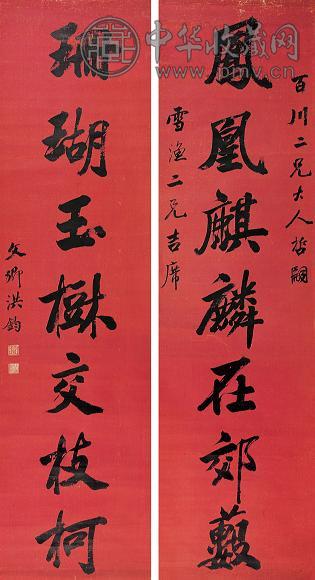 百川二兄大人哲嗣
鳳凰麒麟在郊藪
雪漁二兄吉席
珊瑚玉樹交枝柯
文卿洪鈞
中华收藏网
www.pmv.cn